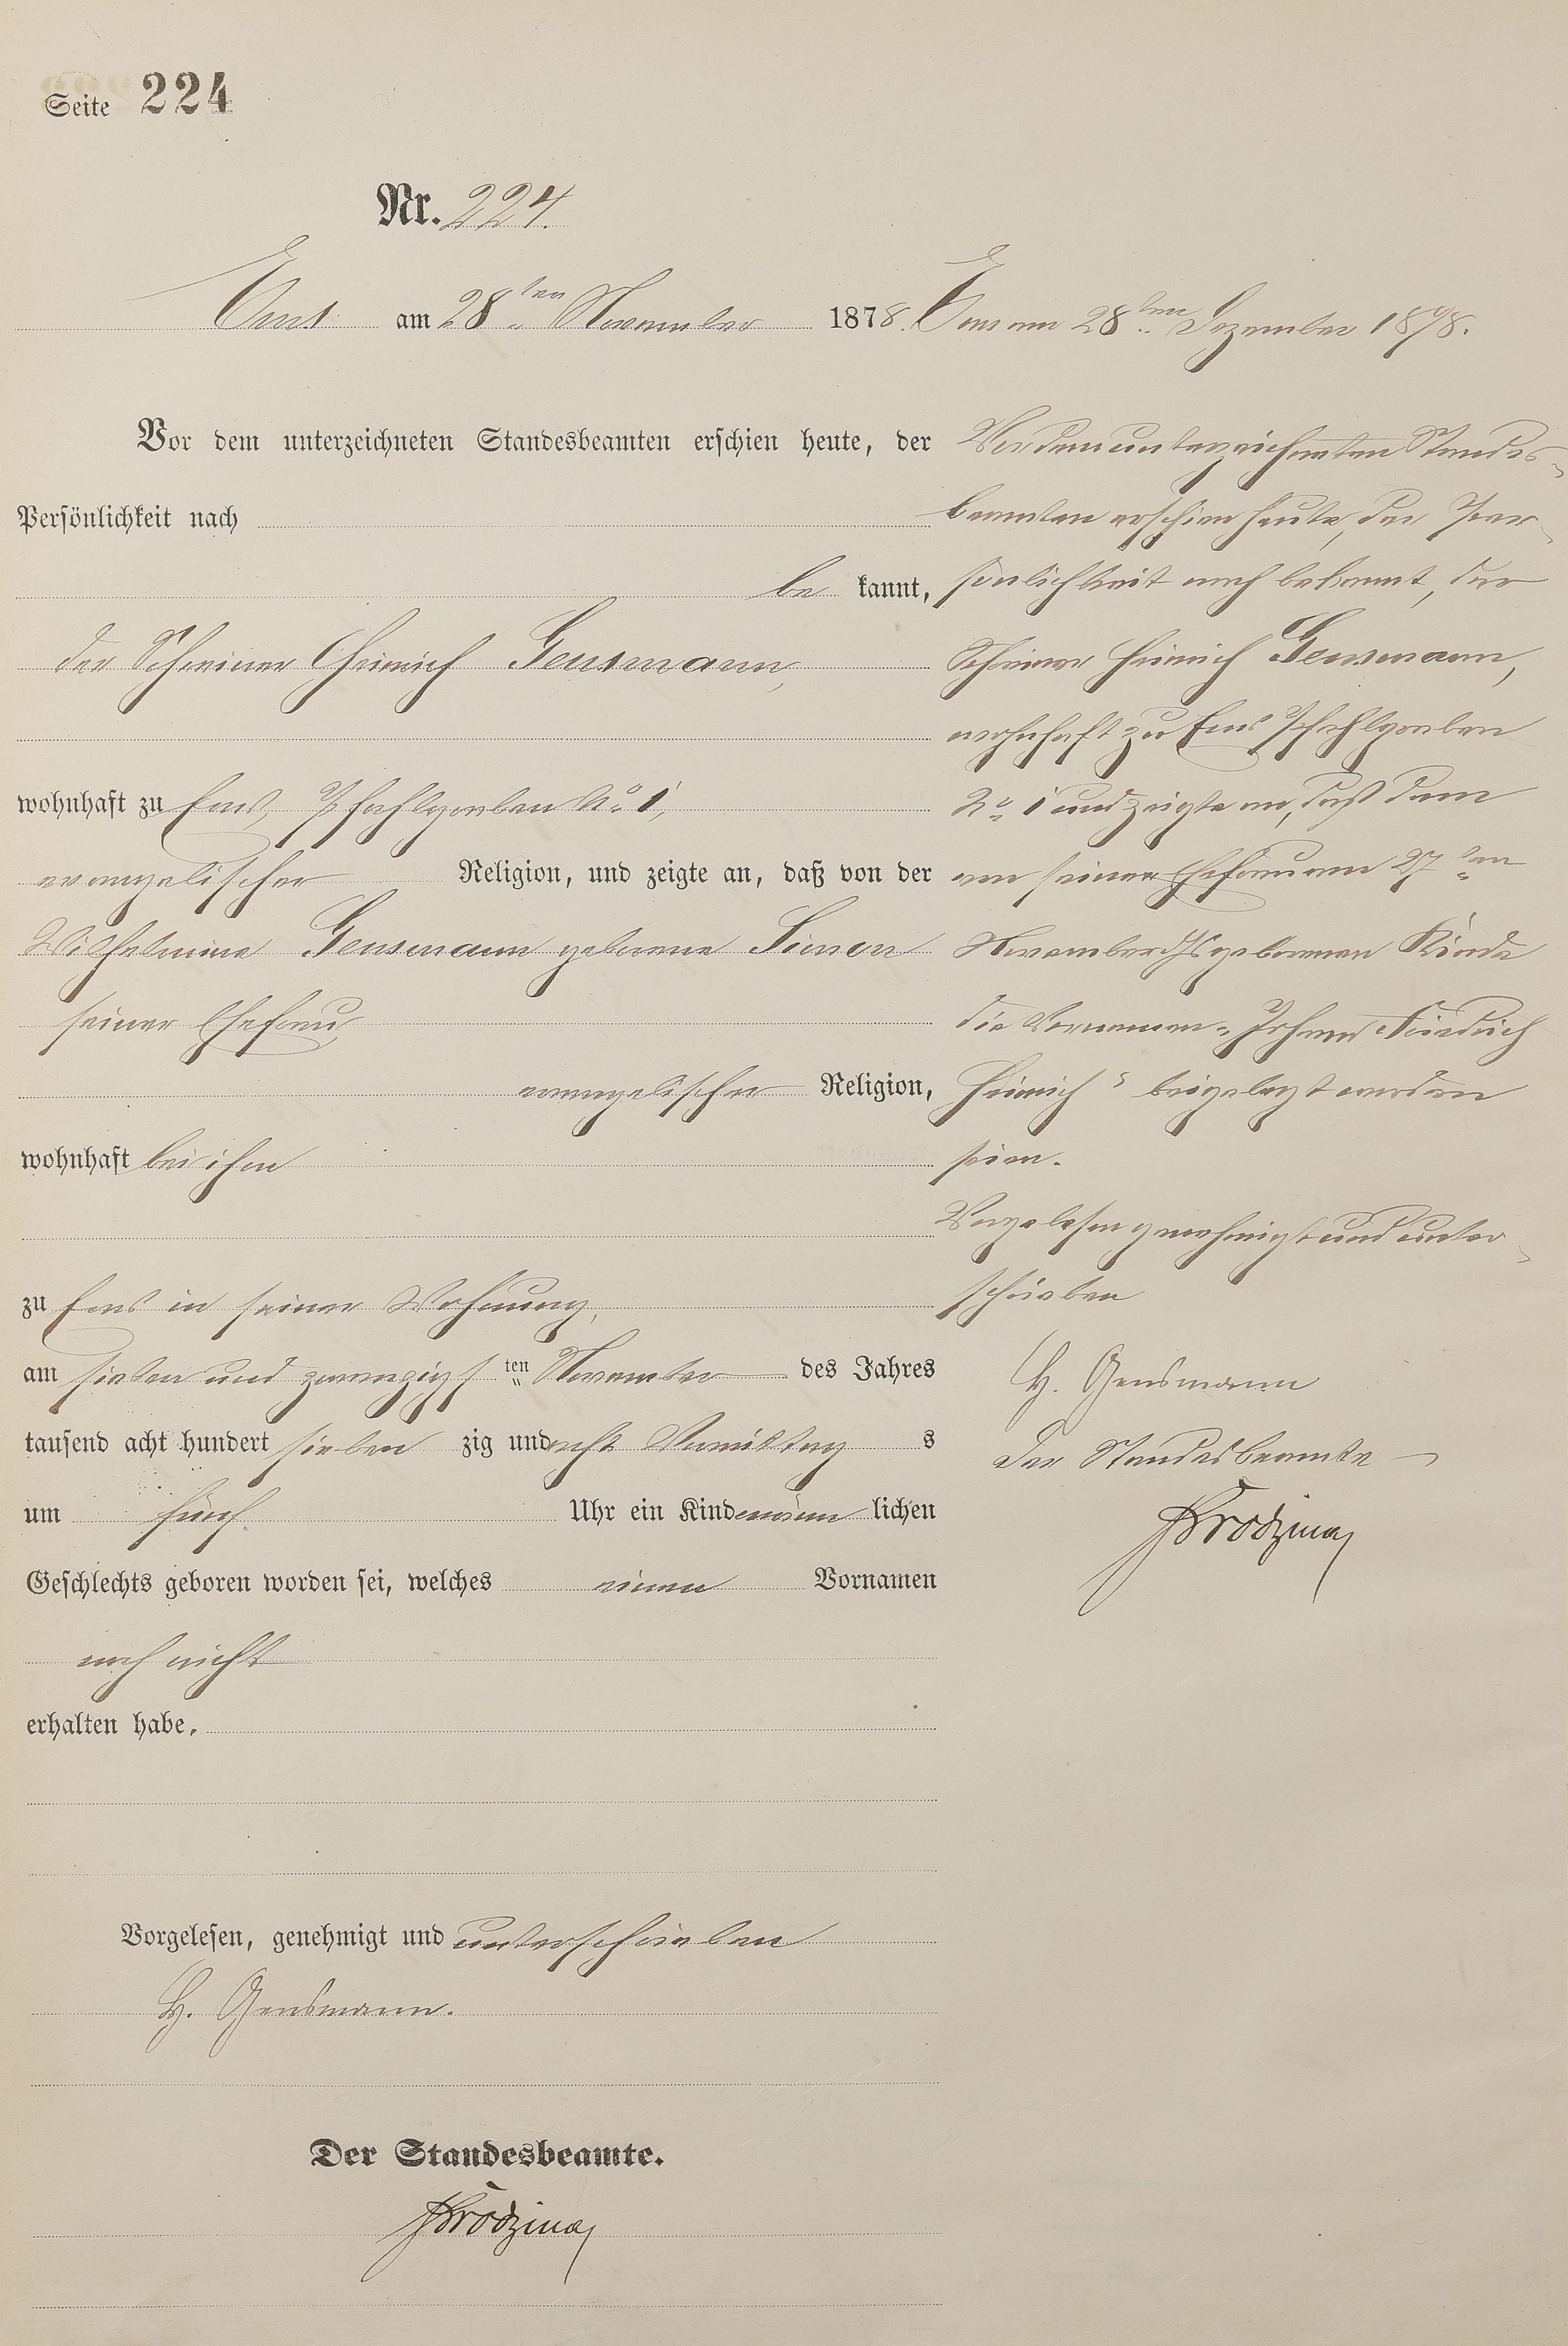 Seite 224
Nr. 224.
Ems am 28ten November 1878.
Vor dem unterzeichneten Standesbeamten erschien heute, der
Persönlichkeit nach
be kannt,
der Schreiner Heinrich Gensmann,
wohnhaft zu Ems, Pfahlgraben No 1,
evangelischer Religion, und zeigte an, daß von der
Wilhelmine Gensmann geborene Simon
seiner Ehefrau,
evangelischer Religion,
wohnhaft bei ihm
zu Ems in seiner Wohnung,
am sieben und zwanzigsten November des Jahres
tausend acht hundert sieben zig und acht Vormittag s
um fünf Uhr ein Kind männ lichen
Geschlechts geboren worden sei, welches einen Vornamen
noch nicht
erhalten habe.
Vorgelesen, genehmigt und unterschrieben
H. Gensmann.
Der Standesbeamte.
Ems am 28ten Dezember 1878.
Vor dem unterzeichneten Standes-
beamten erschien heute, der Per-
sönlichkeit nach bekannt, der
Schreiner Heinrich Gensmann,
wohnhaft zu Ems Pfahlgraben
No 1 und zeigte an, daß dem
von seiner Ehefrau am 27ten
November geborenen Kinde
die Vornamen „Johann Friedrich
Heinrich" beigelegt worden
seien.
Vorgelesen genehmigt und unter-
schrieben
H. Gensmann
Der Standesbeamte